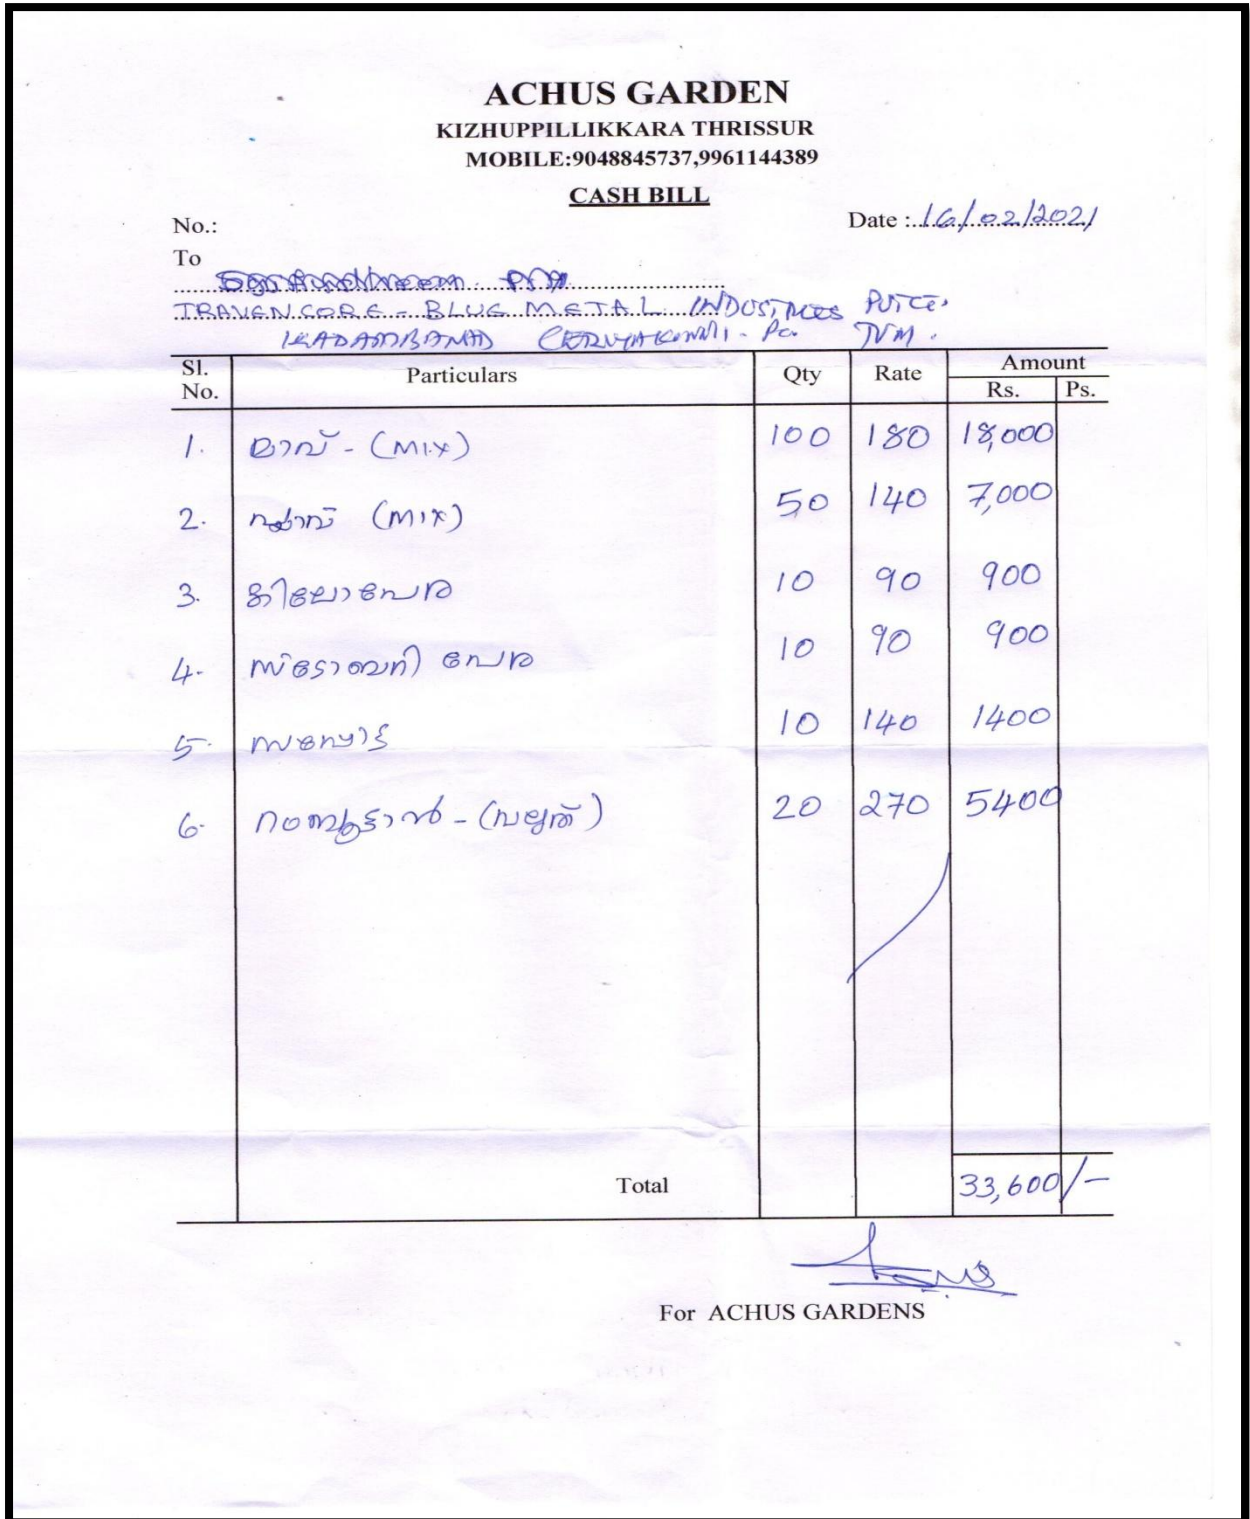 ACHUS GARDEN
KIZHUPPILLIKKARA THRISSUR
MOBILE:9048845737,9961144389
CASH BILL
No.: Date : 16/02/2021
To
TRAVENCORE - BLUE METAL INDUSTRIES PVT CE.
KADAMBANAD - Po. TVM.
Sl. No. Particulars Qty Rate Amount
Rs. Ps.
1. മാവ് - (MIX) 100 180 18,000
2. പ്ലാവ് (MIX) 50 140 7,000
3. കിലോപേര 10 90 900
4. സ്ടോബറി പേര 10 90 900
5. സപ്പോട്ട 10 140 1400
6. റംബൂട്ടാൻ - (വലുത്) 20 270 5400
Total 33,600/-
For ACHUS GARDENS